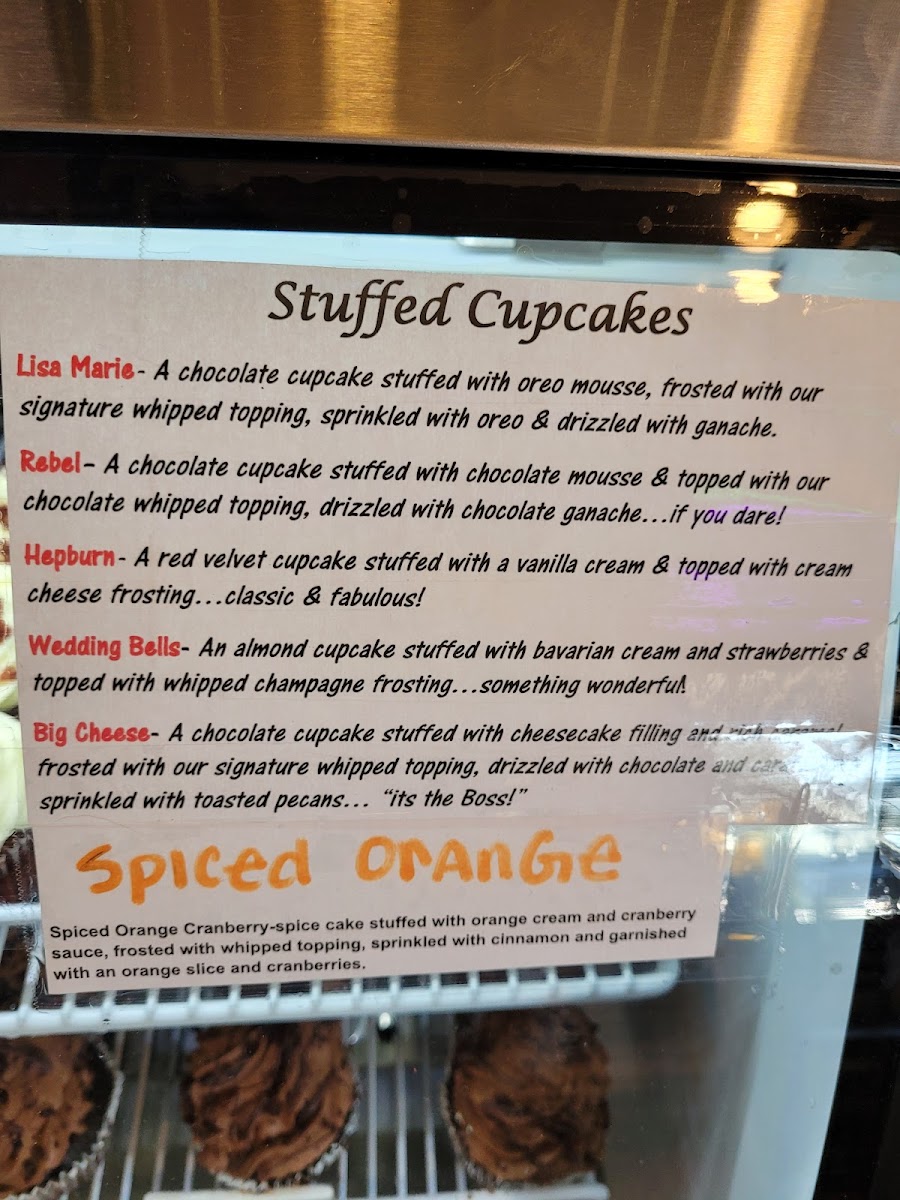 Stuffed Cupcakes
Lisa Marie- A chocolate cupcake stuffed with oreo mousse, frosted with our
signature whipped topping, sprinkled with oreo & drizzled with ganache.
Rebel- A chocolate cupcake stuffed with chocolate mousse & topped with our
chocolate whipped topping, drizzled with chocolate ganache...if you dare!
Hepburn- A red velvet cupcake stuffed with a vanilla cream & topped with cream
cheese frosting...classic & fabulous!
Wedding Bells- An almond cupcake stuffed with bavarian cream and strawberries &
topped with whipped champagne frosting...something wonderful!
Big Cheese- A chocolate cupcake stuffed with cheesecake filling and rich caramel
frosted with our signature whipped topping, drizzled with chocolate and
sprinkled with toasted pecans... “its the Boss!”
Spiced Orange
Spiced Orange Cranberry-spice cake stuffed with orange cream and cranberry
sauce, frosted with whipped topping, sprinkled with cinnamon and garnished
with an orange slice and cranberries.